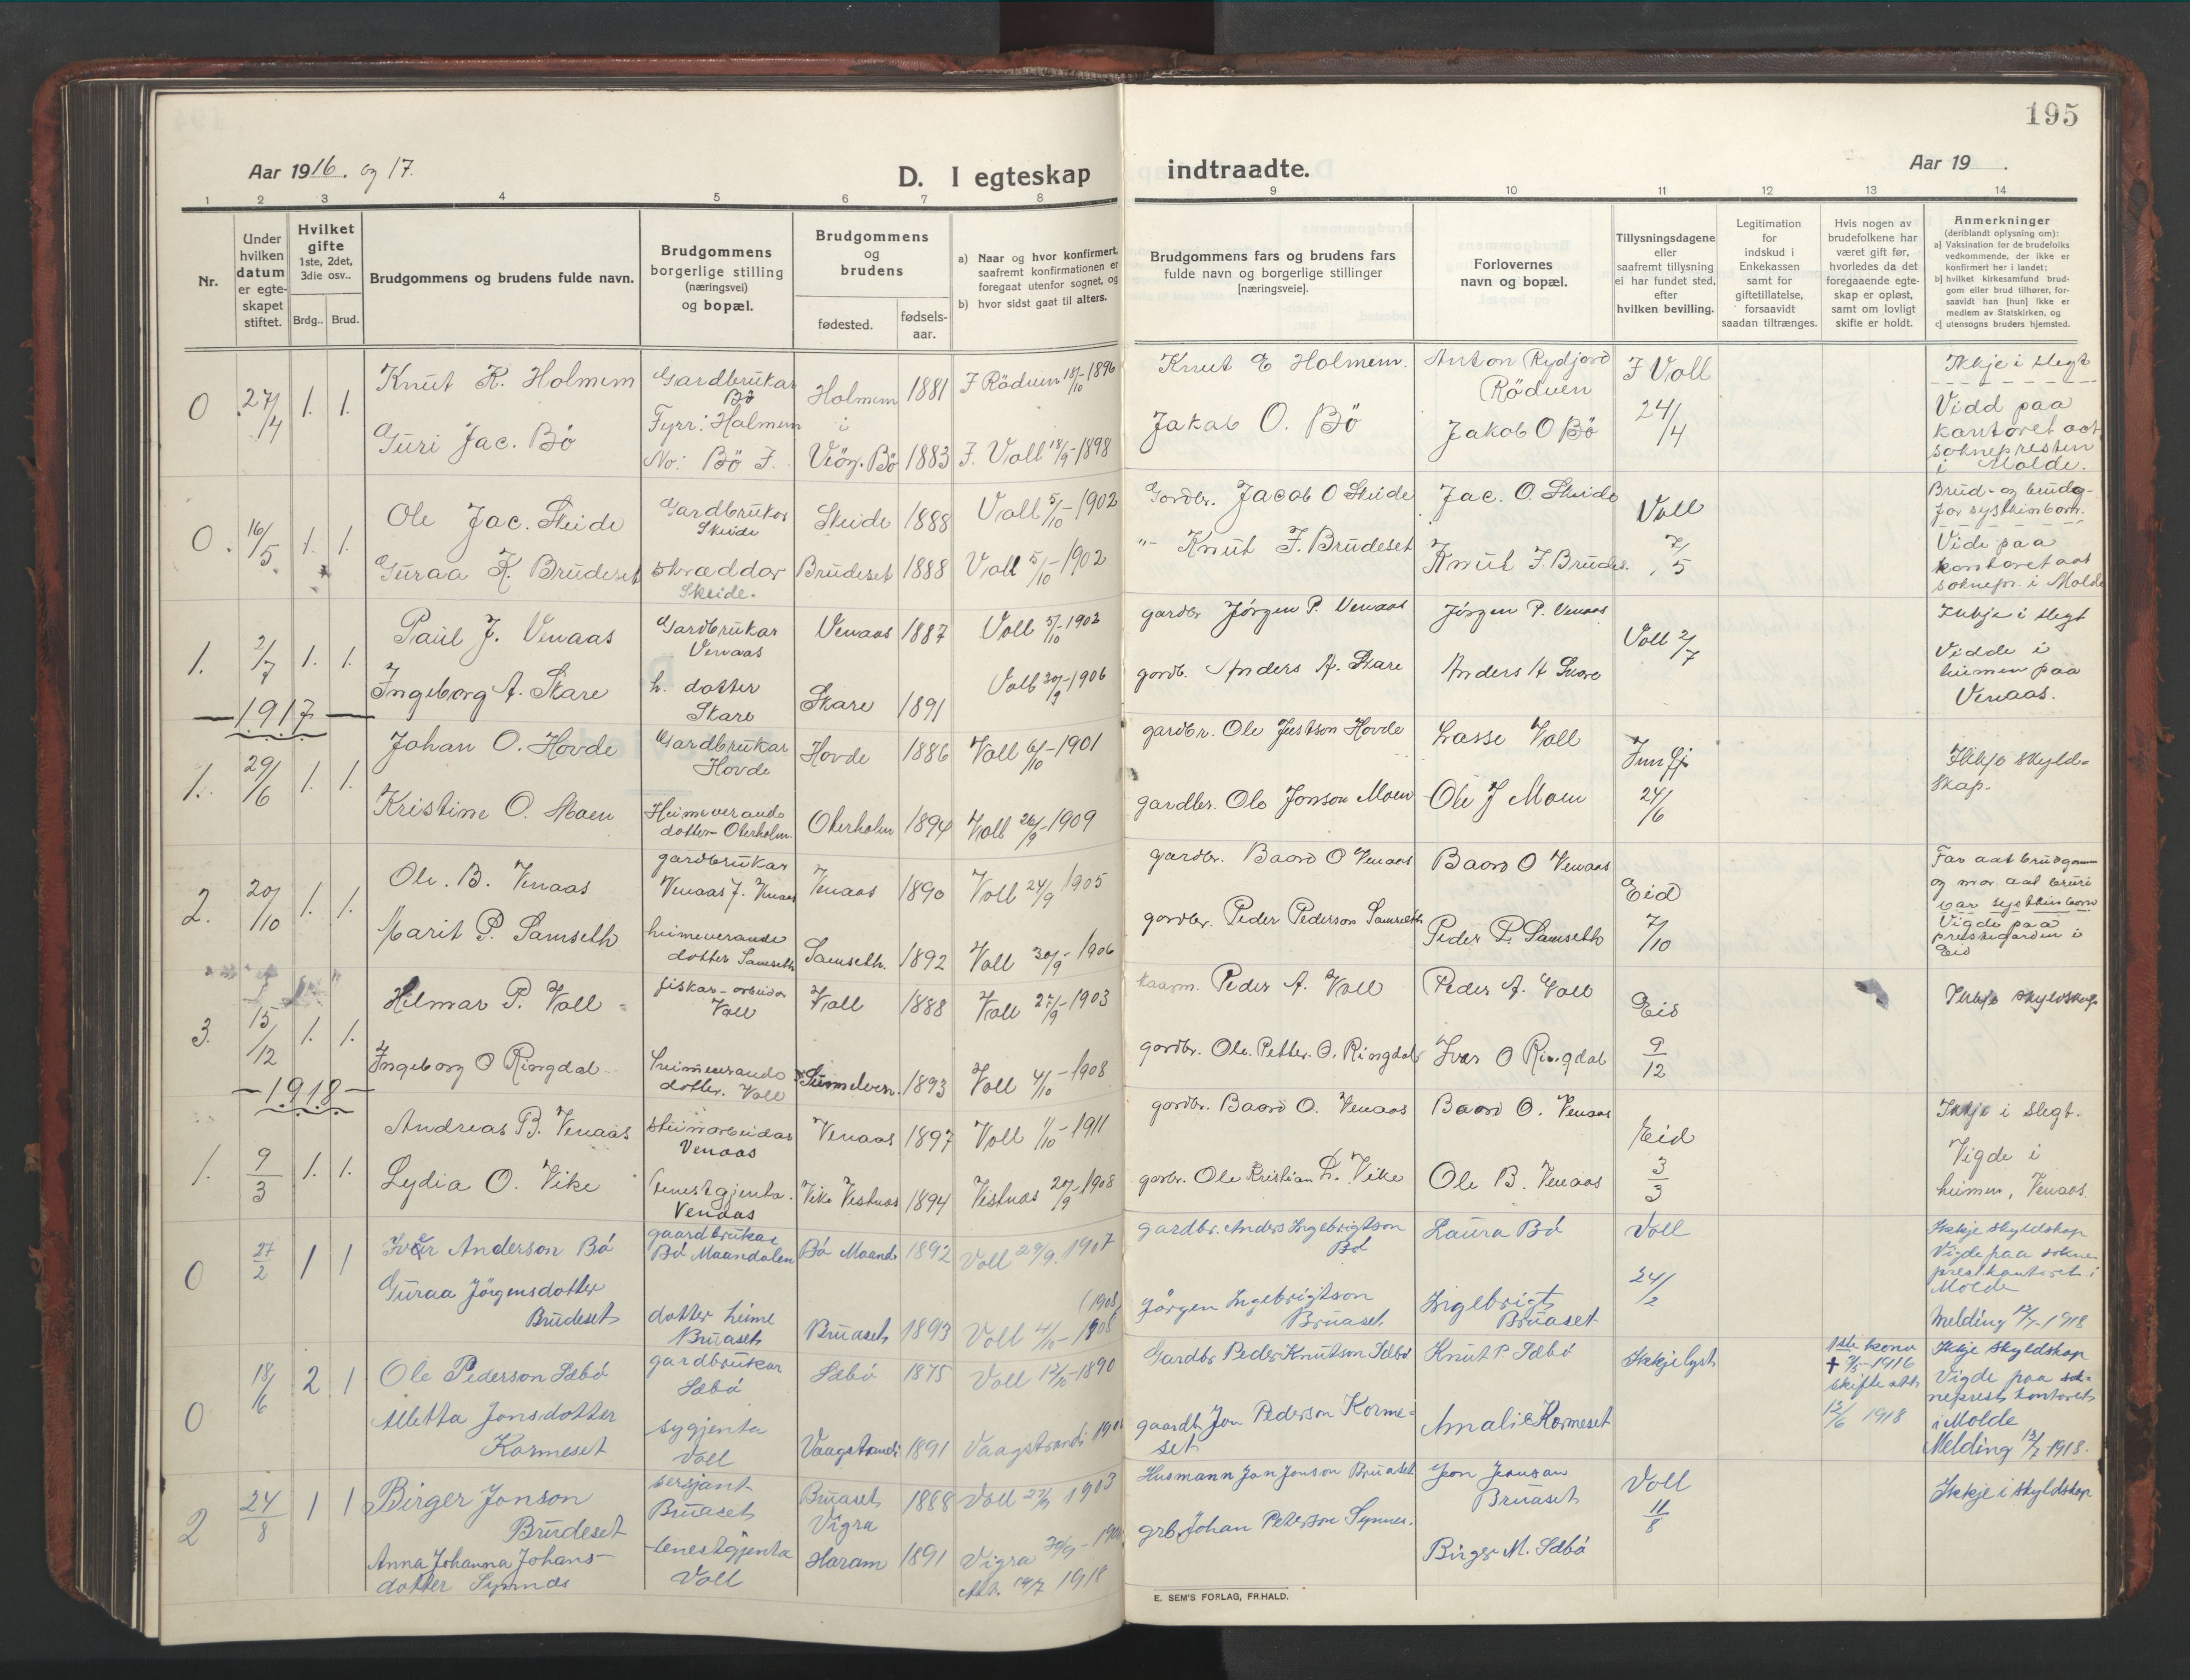 195
Aar 1916. og 17.
D. I egteskap indtraadte.
Aar 19 .
1 2 3 4 5 6 7 8 9 10 11 12 13 14
Nr.
Under
hvilken
datum
er egte-
skapet
stiftet.
Hvilket
gifte
1ste, 2det,
3die osv..
Brdg.. Brud.
Brudgommens og brudens fulde navn.
Brudgommens
borgerlige stilling
(næringsvei)
og bopæl.
Brudgommens
og
brudens
fødested.
fødsels-
aar.
a) Naar og hvor konfirmert,
saafremt konfirmationen er
foregaat utenfor sognet, og
b) hvor sidst gaat til alters.
Brudgommens fars og brudens fars
fulde navn og borgerlige stillinger
[næringsveie].
Forlovernes
navn og bopæl.
Tillysningsdagene
eller
saafremt tillysning
ei har fundet sted,
efter
hvilken bevilling.
Legitimation
for
indskud i
Enkekassen
samt for
giftetillatelse,
forsaavidt
saadan tiltrænges.
Hvis nogen av
brudefolkene har
været gift før,
hvorledes da det
foregaaende egte-
skap er opløst,
samt om lovligt
skifte er holdt.
Anmerkninger
(deriblandt oplysning om):
a) Vaksination for de brudefolks
vedkommende, der ikke er
konfirmert her i landet;
b) hvilket kirkesamfund brud-
gom eller brud tilhører, for-
saavidt han [hun] ikke er
medlem av Statskirken, og
c) utensogns bruders hjemsted.
0 27/4 1. 1.
Knut K. Holmem
Guri Jac. Bö
Gardbrukar
Bö
Fyrr: Holmem
No: Bö I.
Holmem 1881
i
Bö 1883
I Rödven 18/10-1896
I. Voll 18/9-1898
Knut E Holmem.
Jakob O. Bö
Anton Rydjord
Rödven
Jakob O Bö
I Voll
24/4
Ikkje i slegt
Vidd paa
kantoret aat
soknepresten
i Molde.
0. 16/5. 1. 1.
Ole Jac. Skeide
Guraa K. Brudeset
Gardbrukar
Skeide
skræddar
Skeide.
Skeide 1888
Brudeset 1888
Voll 5/10-1902
Voll 5/10-1902
Gardbr. Jacob O Skeide
"- Knut I. Brudeset
Jac. O. Skeide
Knut I. Brudes.
Voll
7/5
Brud- og brudg-
for syskinborn.
Vide paa
kontoret aat
soknepr. i Molde
1. 2/7 1. 1.
Paul J. Venaas
Ingeborg A. Skare
Gardbrukar
Venaas
h. dotter
Skare
Venaas 1887
Skare 1891
Voll 5/10-1902
Voll 30/9-1906
gardbr Jörgen P. Venaas
gardb. Anders A. Skare
Jörgen P. Venaas
Anders A Skare
Voll 2/7
Inkje i slegt
Vidde i
heimen paa
Venaas.
1917
1. 29/6 1. 1.
Johan O. Hovde
Kristine O. Moen
Gardbrukar
Hovde
Heimeverande
dotter- Oterholm.
Hovde 1886
Oterholm 1894
Voll 6/10-1901
Voll 26/9-1909
gardbr. Ole Justson Hovde
gardbr. Ole Jonson Moen
Lasse Voll
Ole J Moen
Innfj.
24/6
Ikkje skyld-
skap.
2. 20/10 1. 1.
Ole. B. Venaas
Marit P. Samseth
gardbrukar
Venaas
heimeverande
dotter Samseth
Venaas 1890
Samseth. 1892
Voll 24/9 1905
Voll 30/9-1906
gardbr. Baard O Venaas
gardbr. Peder Pederson Samseth
Baard O Venaas
Peder P. Samseth
Eid
7/10
Far aat brudgom
og mor aat bruri
var systkinborn
Vigde paa
prestegarden i
Eid
3. 15/12 1. 1.
Hilmar P. Voll
Ingeborg O Ringdal
fiskar-arbeidar
Voll
heimeverande
dotter. Voll
Voll 1888
1893
Voll 27/9-1903
Voll 4/10-1908
kaarm. Peder A. Voll
gardbr. Ole. Petter. O. Ringdal
Peder A. Voll
Ivar O Ringdal
Eid
9/12
Ikkje skyldskap
1918
1. 9/3 1. 1.
Andreas B. Venaas
Lydia O. Vike
steinarbeidar
Venaas
tenestgjenta.
Venaas
Venaas 1897
Vike Vestnes 1894
Voll 1/10-1911
Vestnes 20/9-1908
gardbr. Baard O. Venaas
gardbr. Ole Kristian L. Vike
Baard O. Venaas
Ole B. Venaas
Eid
3/3
Ikkje i slegt.
Vigde i
heimen, Venaas.
0 27/2 1 1
Ivar Anderson Bö
Guraa Jörgensdotter
Brudeset
gaardbrukar
Bö Maandalen
dotter heime
Bruaset
Bö Maand. 1892
Bruaset 1893
Voll 29/9. 1907
(1908)
Voll 4/10-1908
gardbr. Anders Ingebrigtson
Bö
Jörgen Ingebrigtson
Bruaset
Laura Bö
Ingebrigt
Bruaset
Voll
24/2
Ikkje skyldskap
Vigde paa sokne-
prestkantoret i
Molde
Melding 12/7-1918
0 18/6 2 1
Ole Pederson Sæbö
Metta Jonsdotter
Kormeset
gardbrukar
Sæbö
sygjenta
Voll
Sæbö 1875
Vaagstrand 1891
Voll 12/10-1890
Vaagstrand
Gardbr Peder Knutson Sæbö
gaardb. Jon Pederson Korme-
set
Knut P Sæbö
Amalie Kormeset
Ikkje lyst
1ste kona
† 9/5-1916
skifte att.
12/6 1918
Ikkje skyldskap
Vigde paa sok-
neprest kontoret
i Molde
Melding 12/7 1918.
2 24/8 1 1
Birger Jonson
Brudeset
Anna Johanna Johans-
dotter Synnes
sersjant
Bruaset
tenestgjenta
Voll
Bruaset 1888
Vigra
Haram 1891
Voll 27/9 1903
Vigra 30/9
Att. 14/7 1918
Husmann Jon Jonson Bruaset
grb. Johan Peterson Synnes.
Jon Jonson
Bruaset
Birger M. Sæbö
Voll
11/8
Ikkje i skyldskap
E. SEM'S FORLAG, FR.HALD.